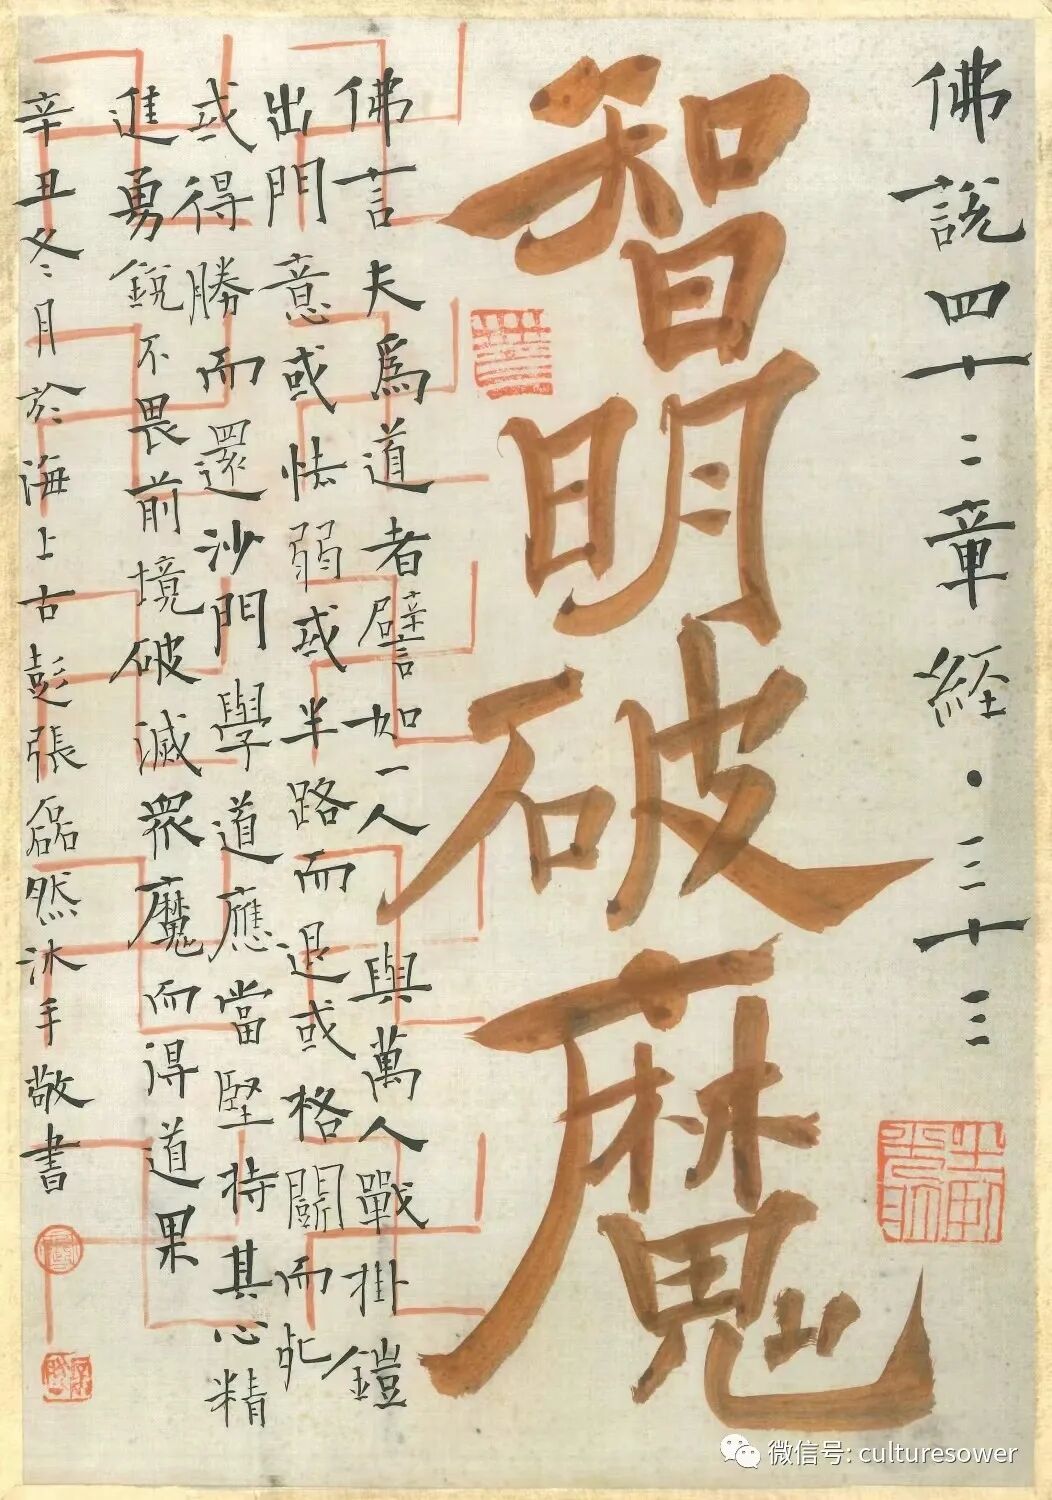 佛說四十二章経·三十三
智明破魔
佛言夫爲道者譬如一人與萬人戰掛鎧
出門意或怯弱或半路而退或格鬭而死
或得勝而還沙門學道應當堅持其心精
進勇銳不畏前境破滅眾魔而得道果
辛丑冬月於海上古彭張磊然沐手敬書
微信号: culturesower